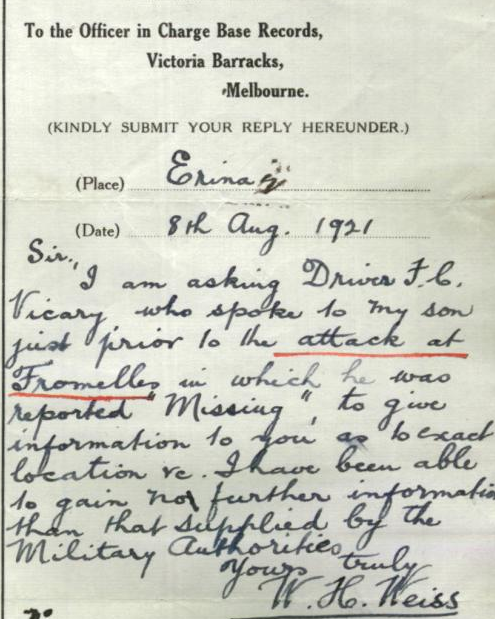 To the Officer in Charge Base Records,
Victoria Barracks,
Melbourne.
(KINDLY SUBMIT YOUR REPLY HEREUNDER.)
(Place) Erina
(Date) 8th Aug. 1921
Sir,
I am asking Driver F. C.
Vicary who spoke to my son
just prior to the attack at
Fromelles in which he was
reported "Missing", to give
information to you as to exact
location &c. I have been able
to gain no further information
than that supplied by the
Military Authorities
Yours truly
W. H. Weiss